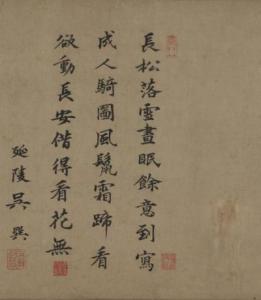 長松落雪晝眠餘意到寫
成人騎圖風鬣霜蹄看
欲動長安偕得看花無
延陵吳巽